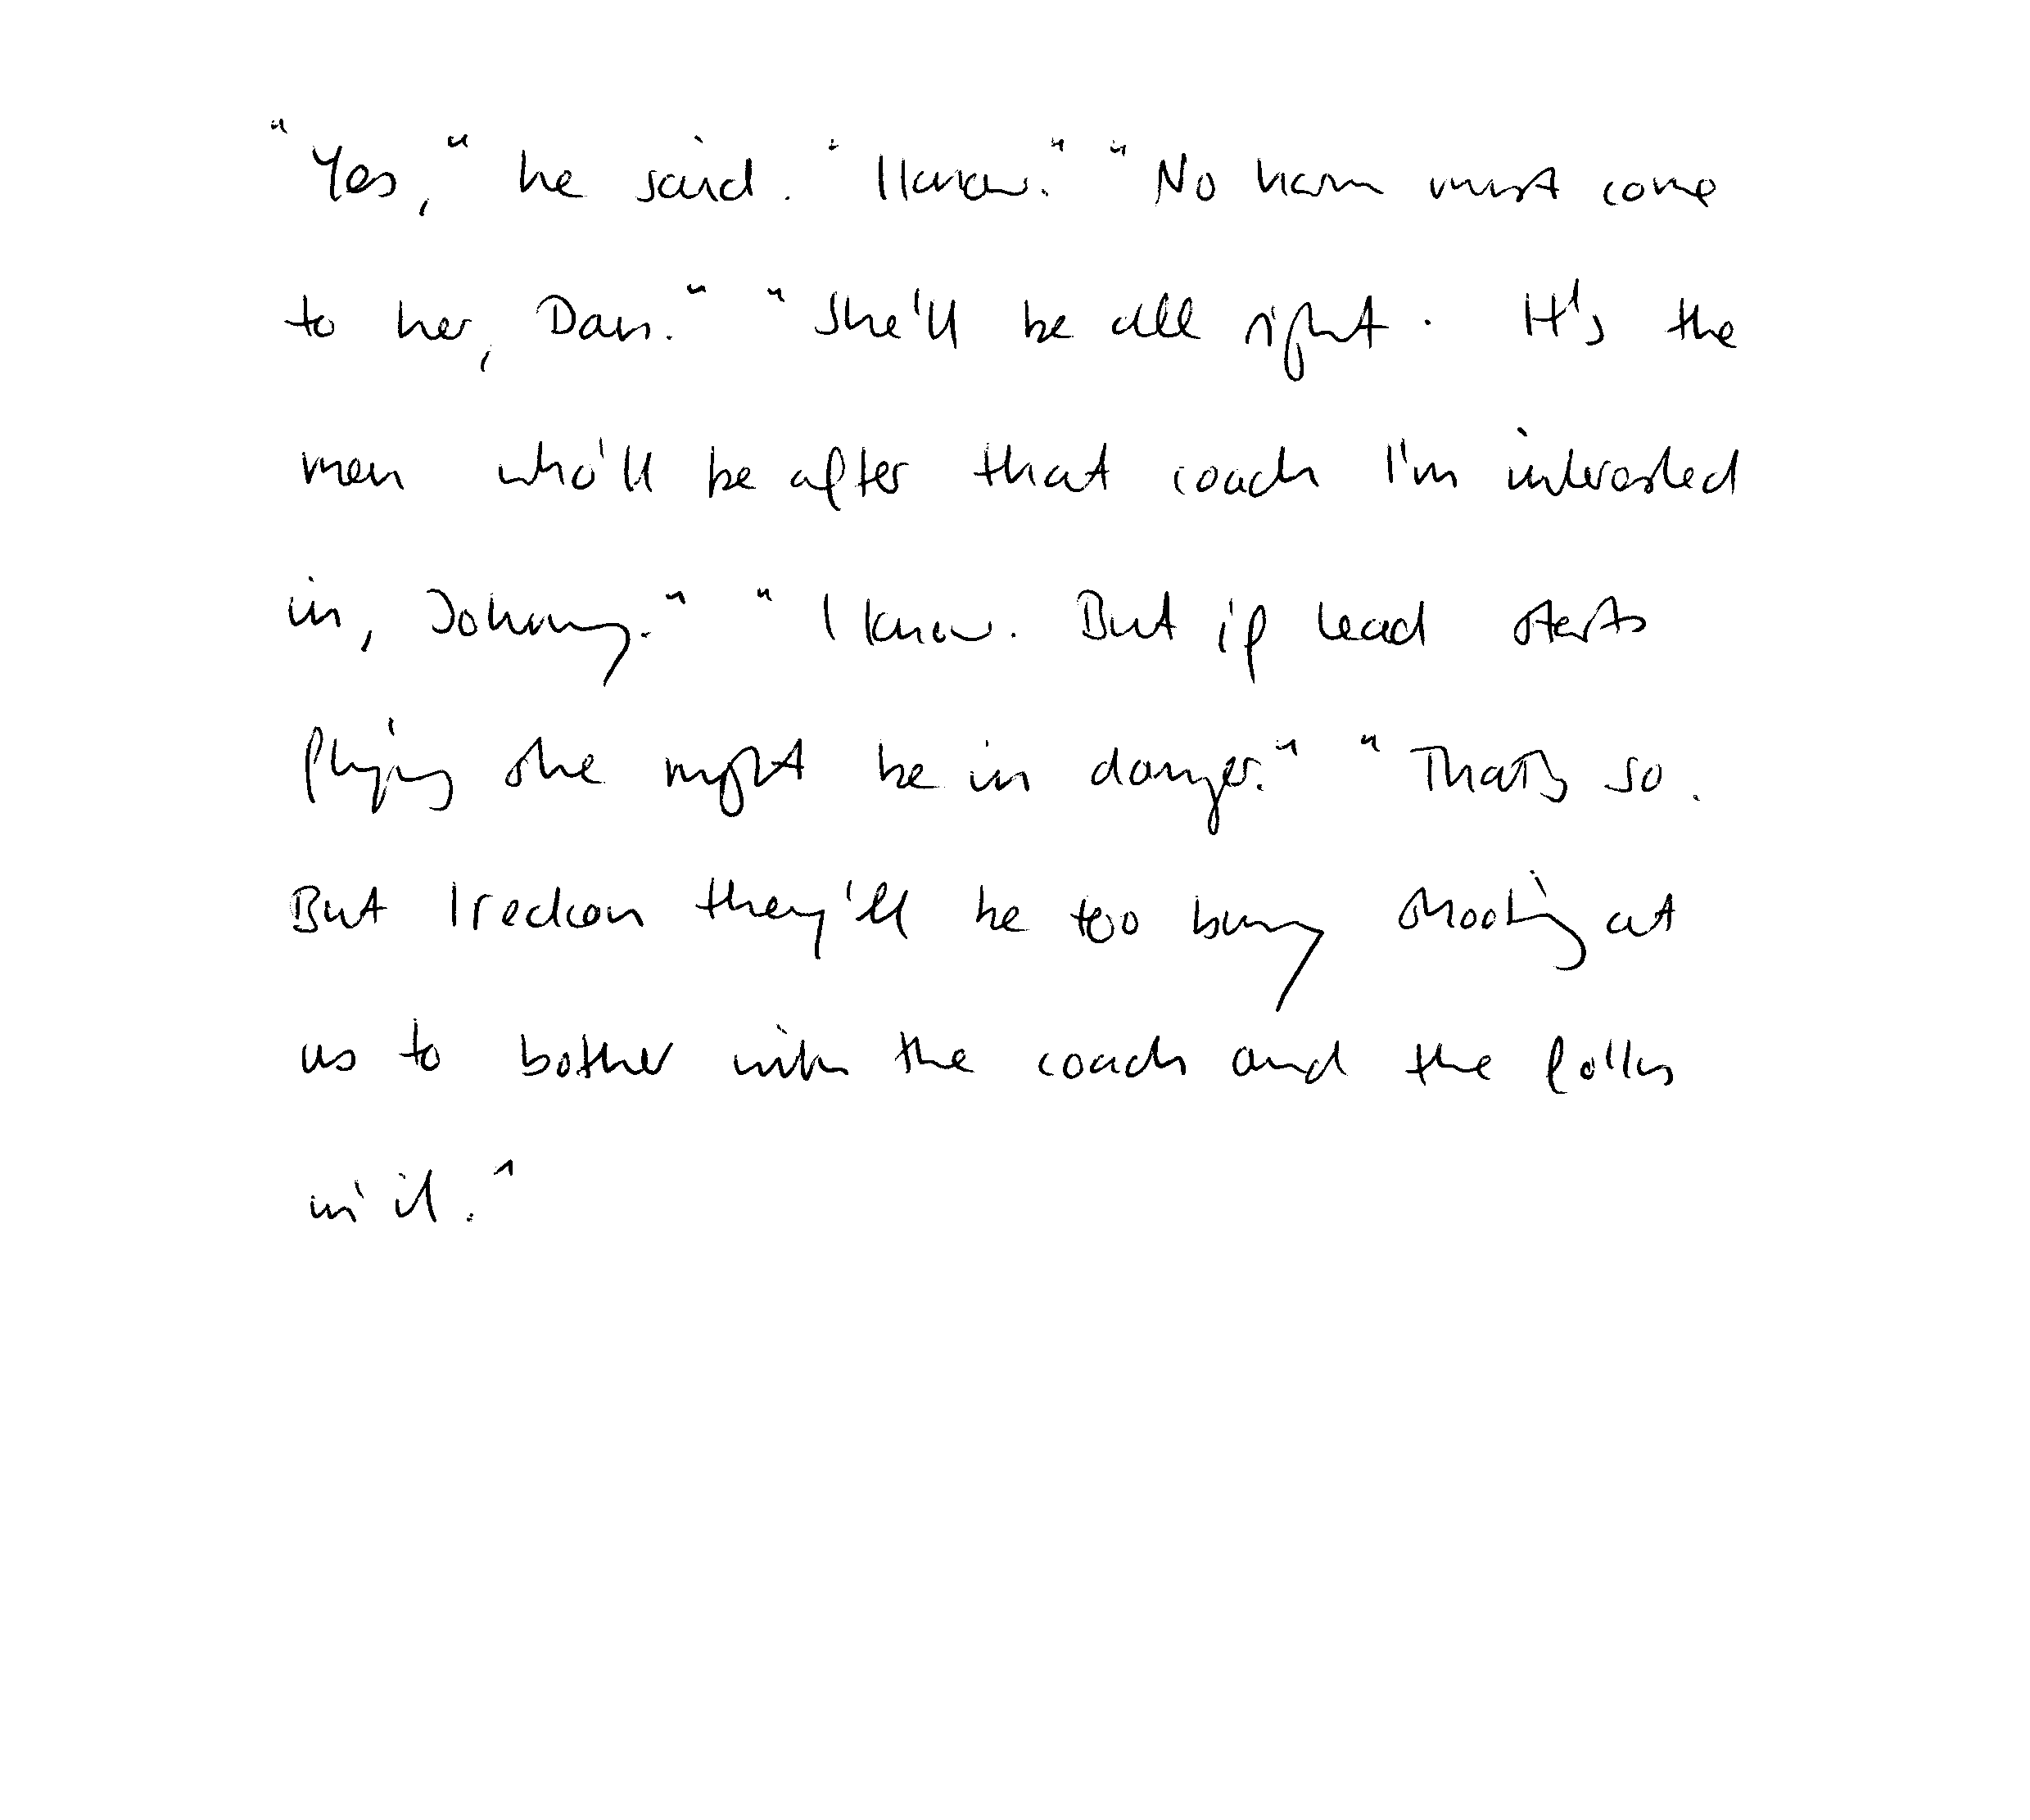 "Yes," he said. "I know." "No harm must come
to her, Dan." "She'll be all right. It's the
men who'll be after that coach I'm interested
in, Johnny." "I know. But if lead starts
flying she might be in danger." "That's so.
But I reckon they'll be too busy shooting at
us to bother with the coach and the folks
in it."